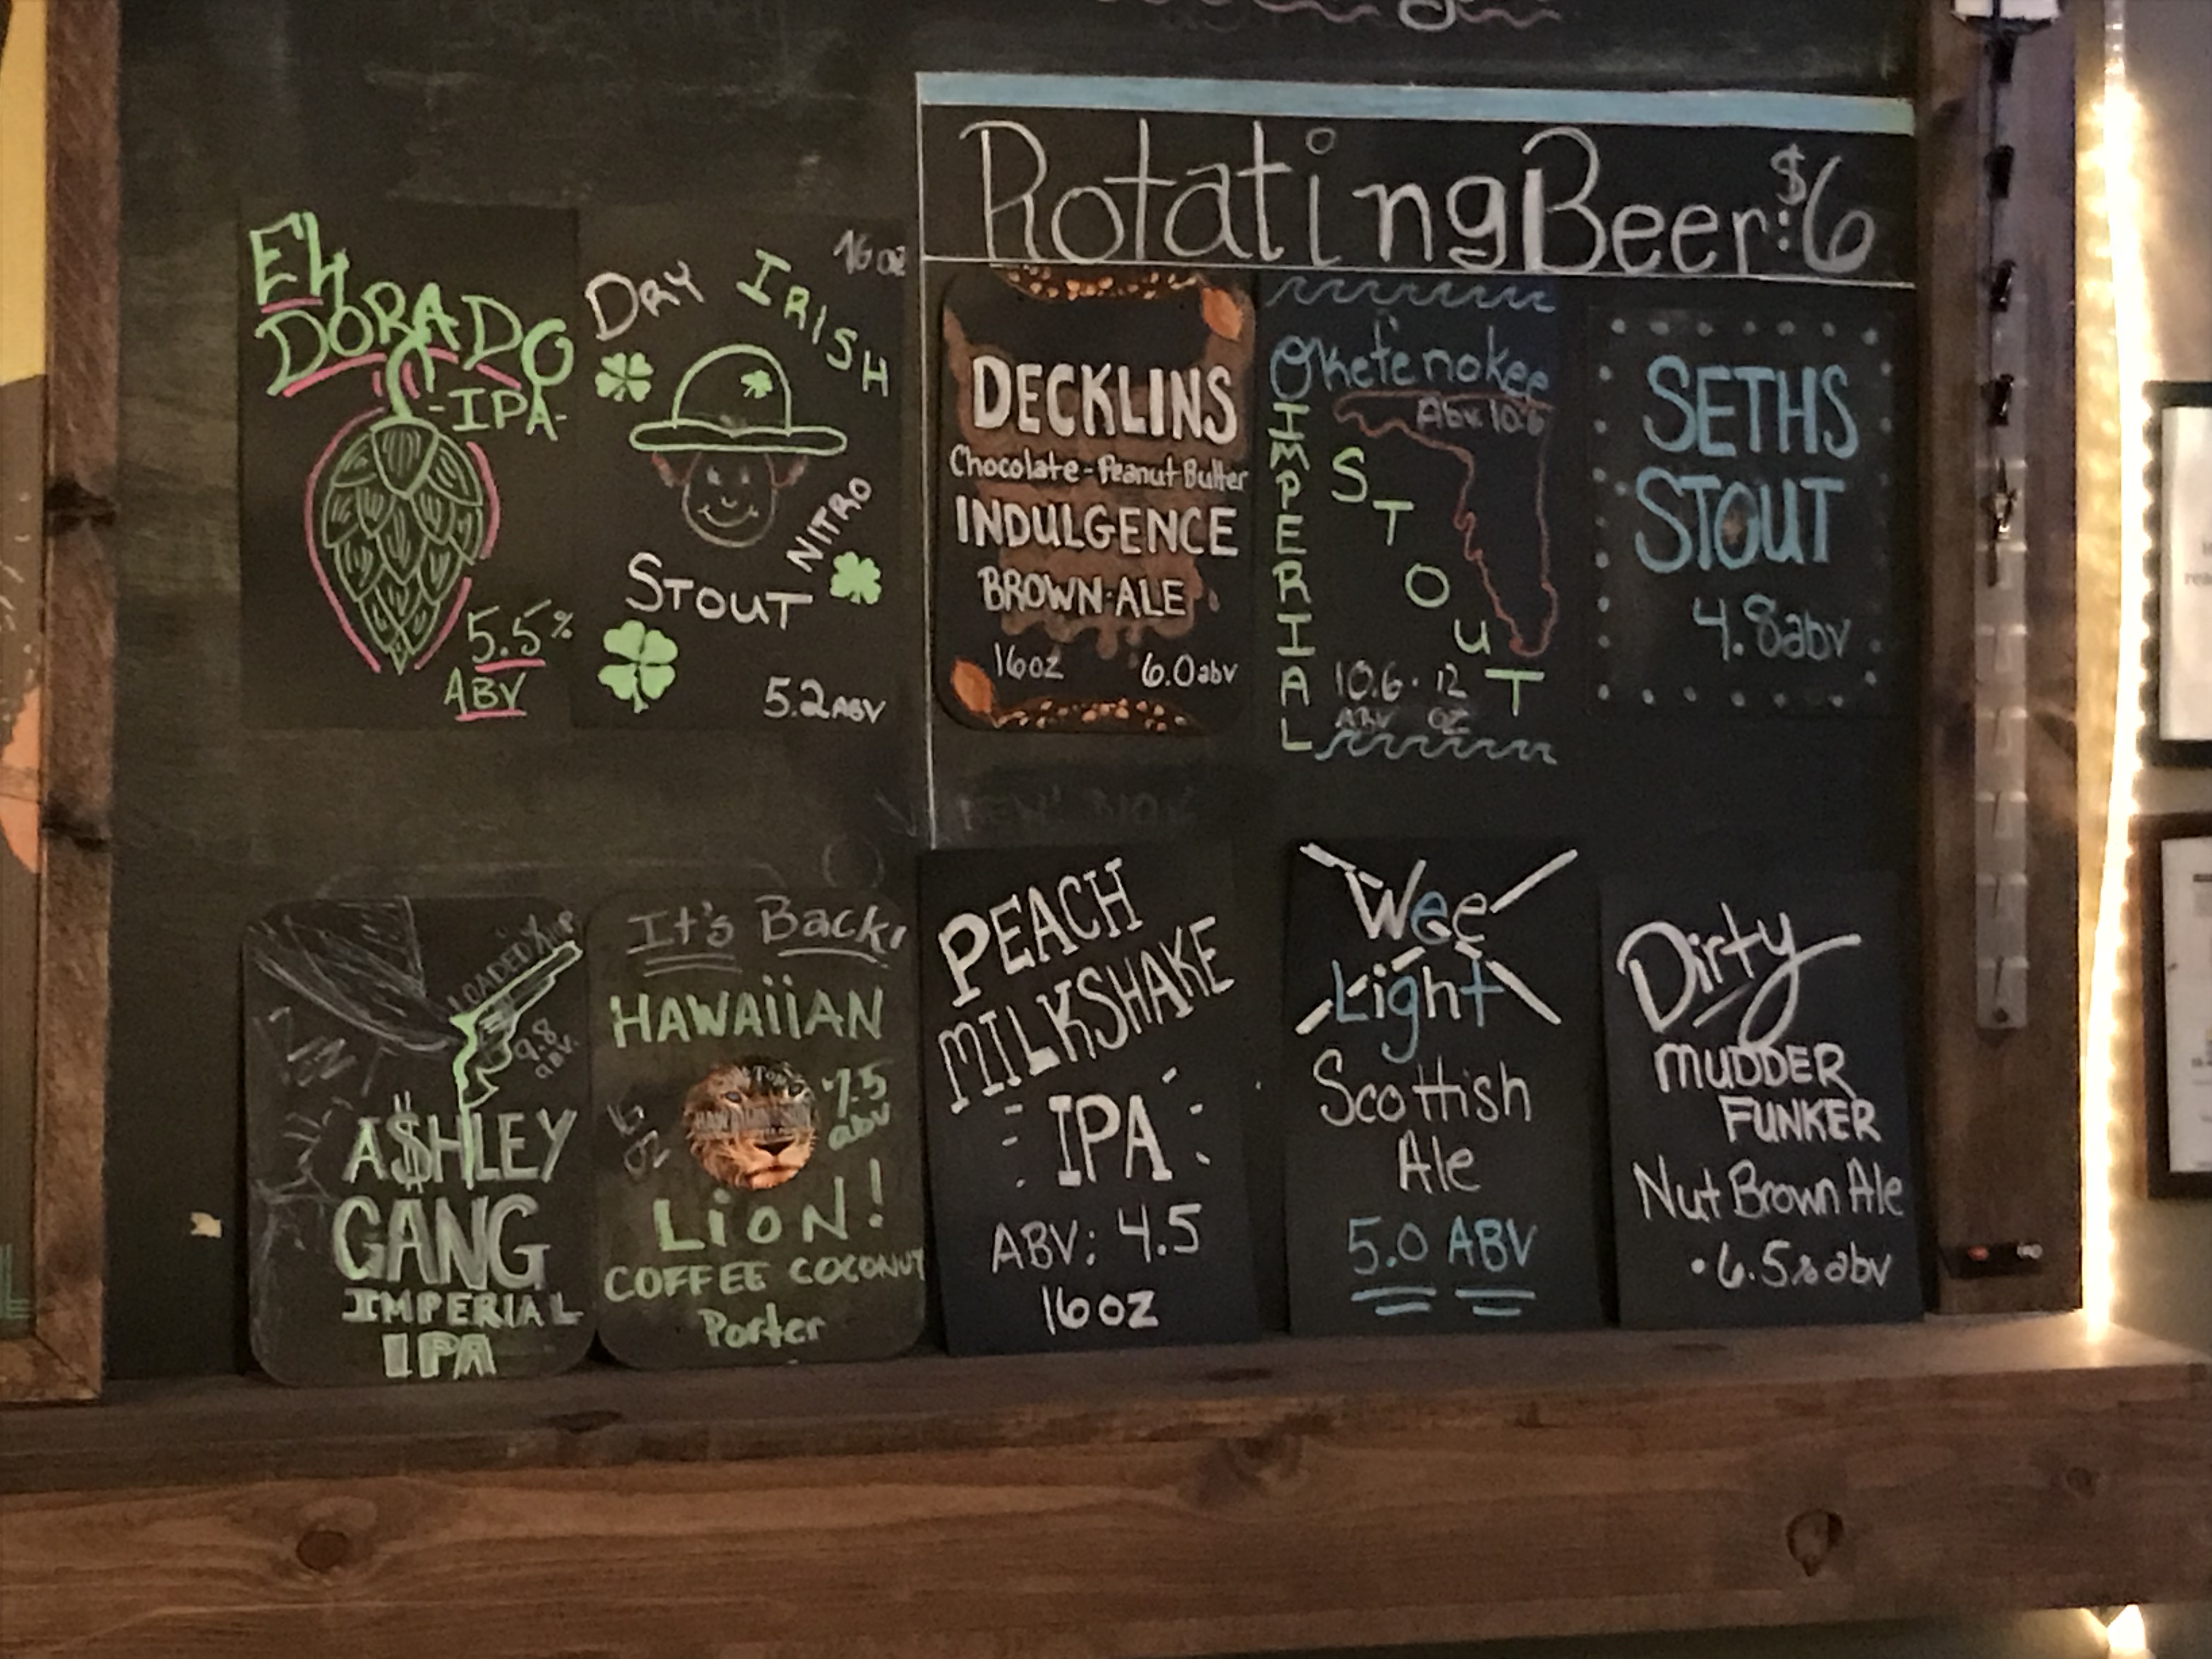 Rotating Beer: $6
El
DORADO
-IPA-
5.5%
ABV
16oz
DRY IRISH
NITRO
STOUT
5.2 ABV
DECKLINS
Chocolate-Peanut Butter
INDULGENCE
BROWN-ALE
16oz 6.0abv
Okefenokee
Abv. 10.6
IMPERIAL
STOUT
10.6 · 12
ABV OZ
SETHS
STOUT
4.8abv
LOADED
9.8
abv.
A$HLEY
GANG
IMPERIAL
IPA
It's Back!
HAWAiiAN
7.5
abv
LioN!
COFFEE COCONUT
Porter
PEACH
MILKSHAKE
IPA
ABV: 4.5
16oz
Wee
Light
Scottish
Ale
5.0 ABV
Dirty
MUDDER
FUNKER
Nut Brown Ale
·6.5% abv